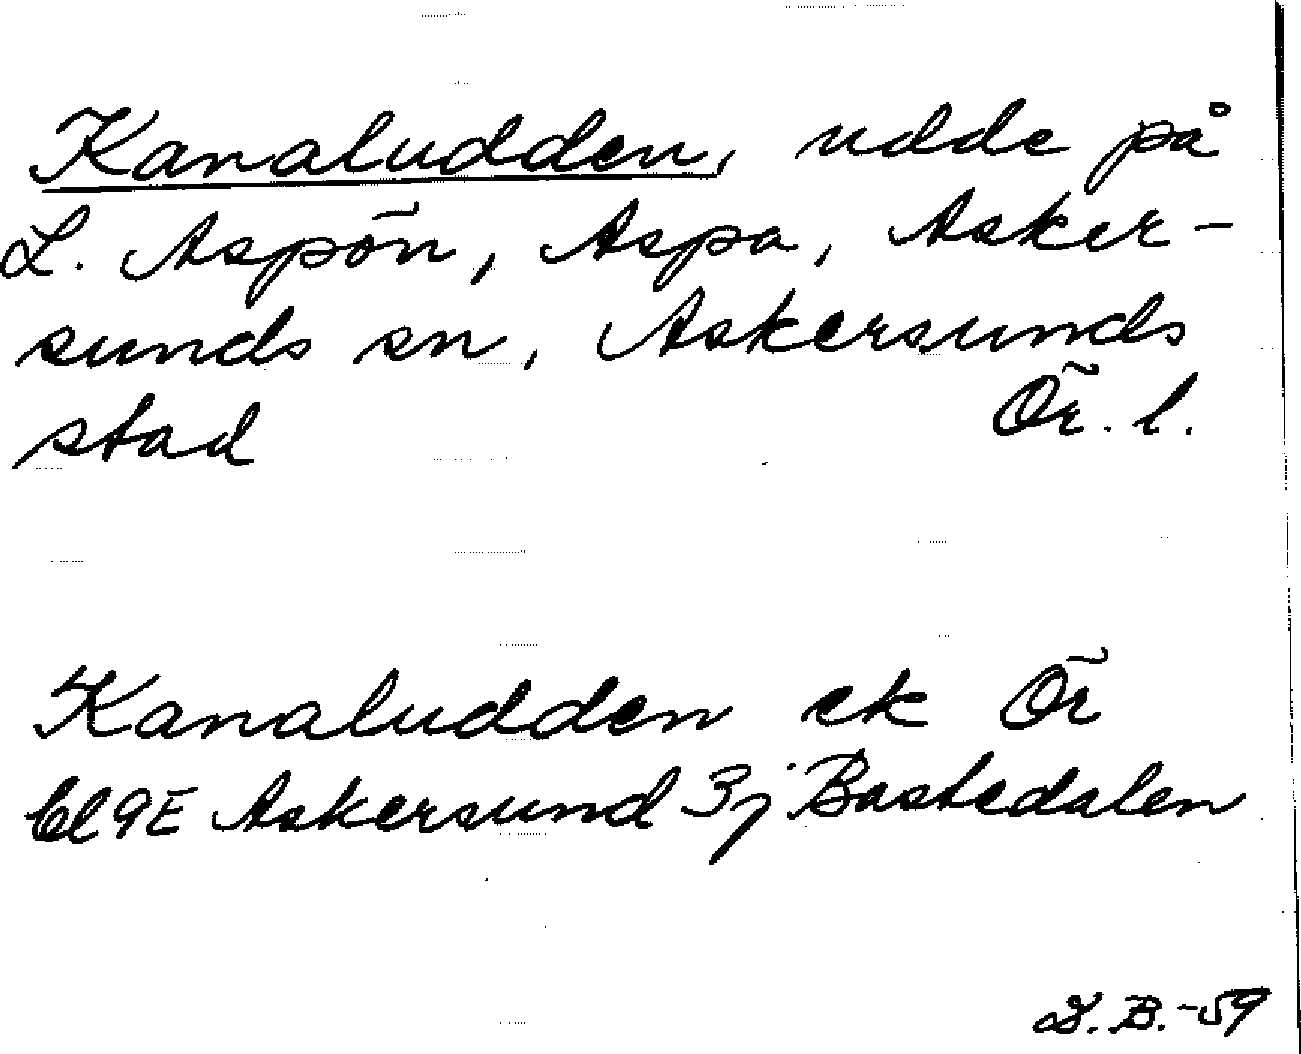 Kanaludden, udde på
L. Aspön, Aspa, Asker-
sunds sn, Askersunds
stad Ör. l.
Kanaludden ek Ör
bl 9E Askersund 3j Bastedalen
B.-59